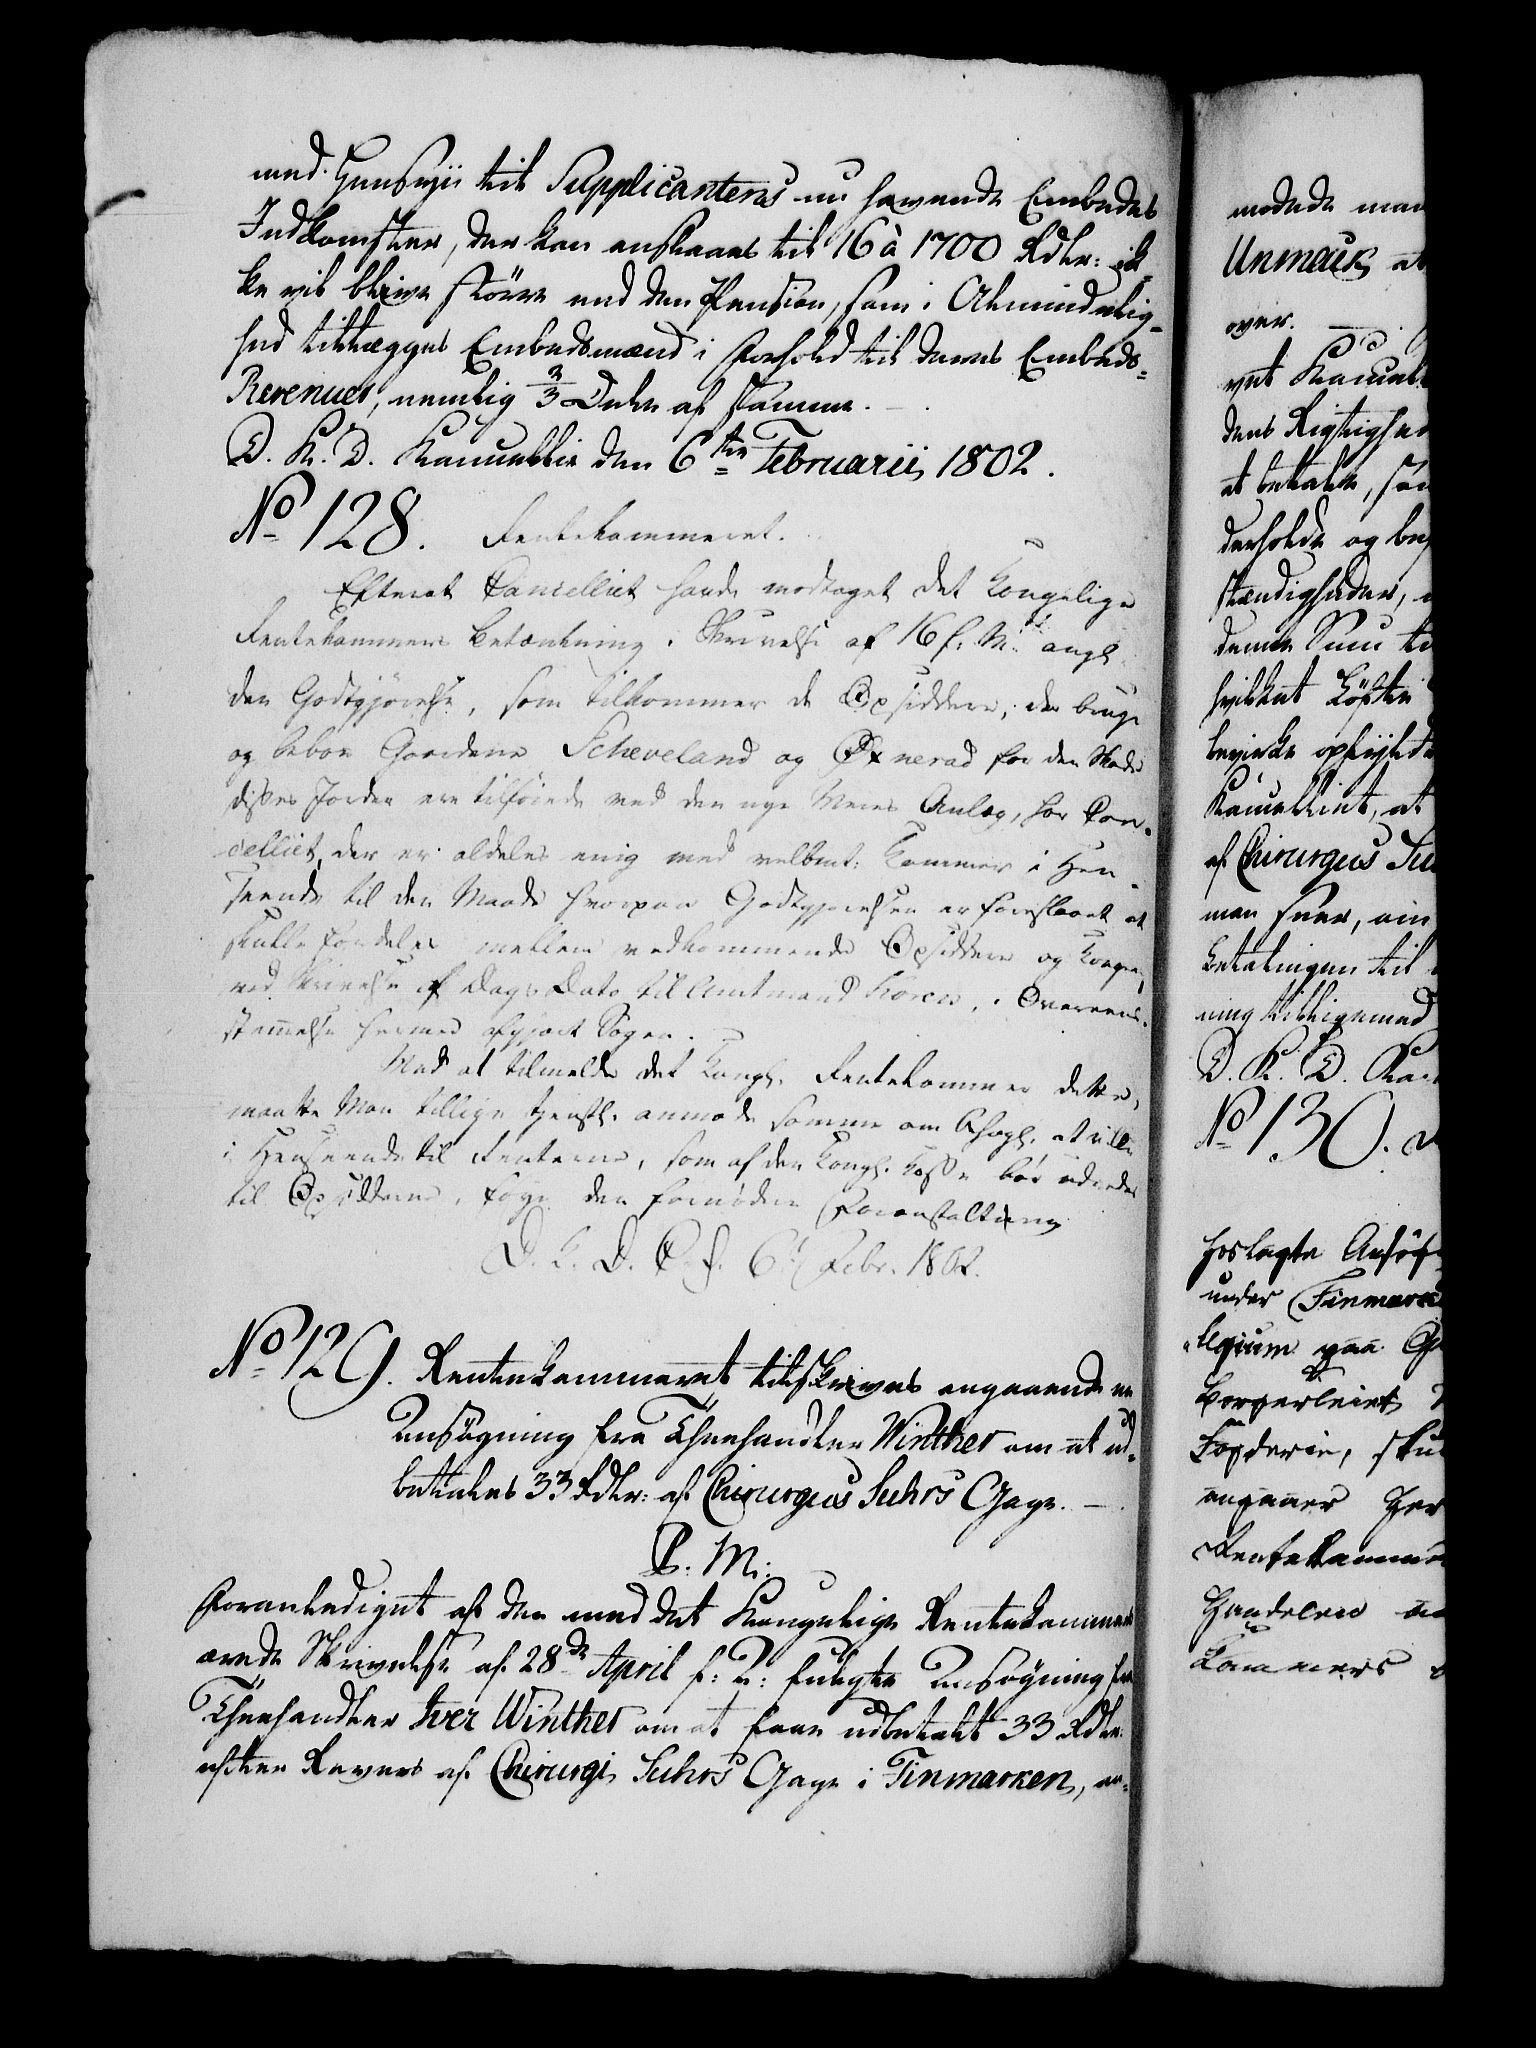 med Hensyn til Supplicanteres nu havende Embedes
Indkomster, der kan anslaaes til 16 à 1700 Rdlr: ik-
ke vil blive större end den Pension, som i Almindelig-
hed tillægges Embedsmænd i Forhold til deres Embeds-
Revenuer, nemlig 2/3 Dele af samme. —.
D. K. D. Kancellie den 6te Februarii 1802.
No 128. Rentekammeret.
Efterat Cancelliet havde modtaget det Kongelige
Rentekammers Betænkning i Skrivelse af 16 f. M. angl.
den Godtgjörelse, som tilkommer de Opsiddere, der bruge
og beboe Gaardene Scheveland og Oxnerad for den Skade
disses Jorder ere tilföiede ved den nye Veies Anlæg, har Can-
celliet, der er aldeles enig med velbemt: Kammer i Hen-
seende til den Maade hvorpaa Godtgjörelsen er foreslaaet at
skulle fordeles mellem vedkommende Opsiddere og Kongen,
ved Skrivelse af Dags Dato til Amtmand Koren, i Overeens-
stemmelse hermed afgjort Sagen.
Ved at tilmelde det Kongl. Rentekammer dette,
maatte Man tillige tjenstl. anmode samme om behagl. at ville
i Henseende til Renterne, som af den Kongl. Kasse bör udredes
til Opsidderne, föye den fornödne Foranstaltning
D. K. D. C. d. 6t Febr. 1802.
No 129. Rentekammeret tilskrives angaaende en
Ansögning fra Theehandler Winther om at ud-
betales 33 Rdlr: af Chirurgus Suhrs Gage. —.
P. M:
Foranlediget af den med det Kongelige Rentekammers
ærede Skrivelse af 28de April f: A: fulgte Ansögning fra
Theehandler Iver Winther om at faae udbetalt 33 Rdlr:
efter Revers af Chirurgi Suhrs Gage i Finmarken, an-
modede man
Unmack at
over. —
vet Kancel
dens Rigtighed
at betale, saa
derholde og be
stændigheder,
denne Sum ti
hvilket Löfte
bevirke opfyldt
Kancelliet, at
af Chirurgus Su
man seer, ein
betalingen til
ning tilligemed
D. K. D. Kan
No 130.
under Finmark
paa
Rentekamme
Handelen
Kammers